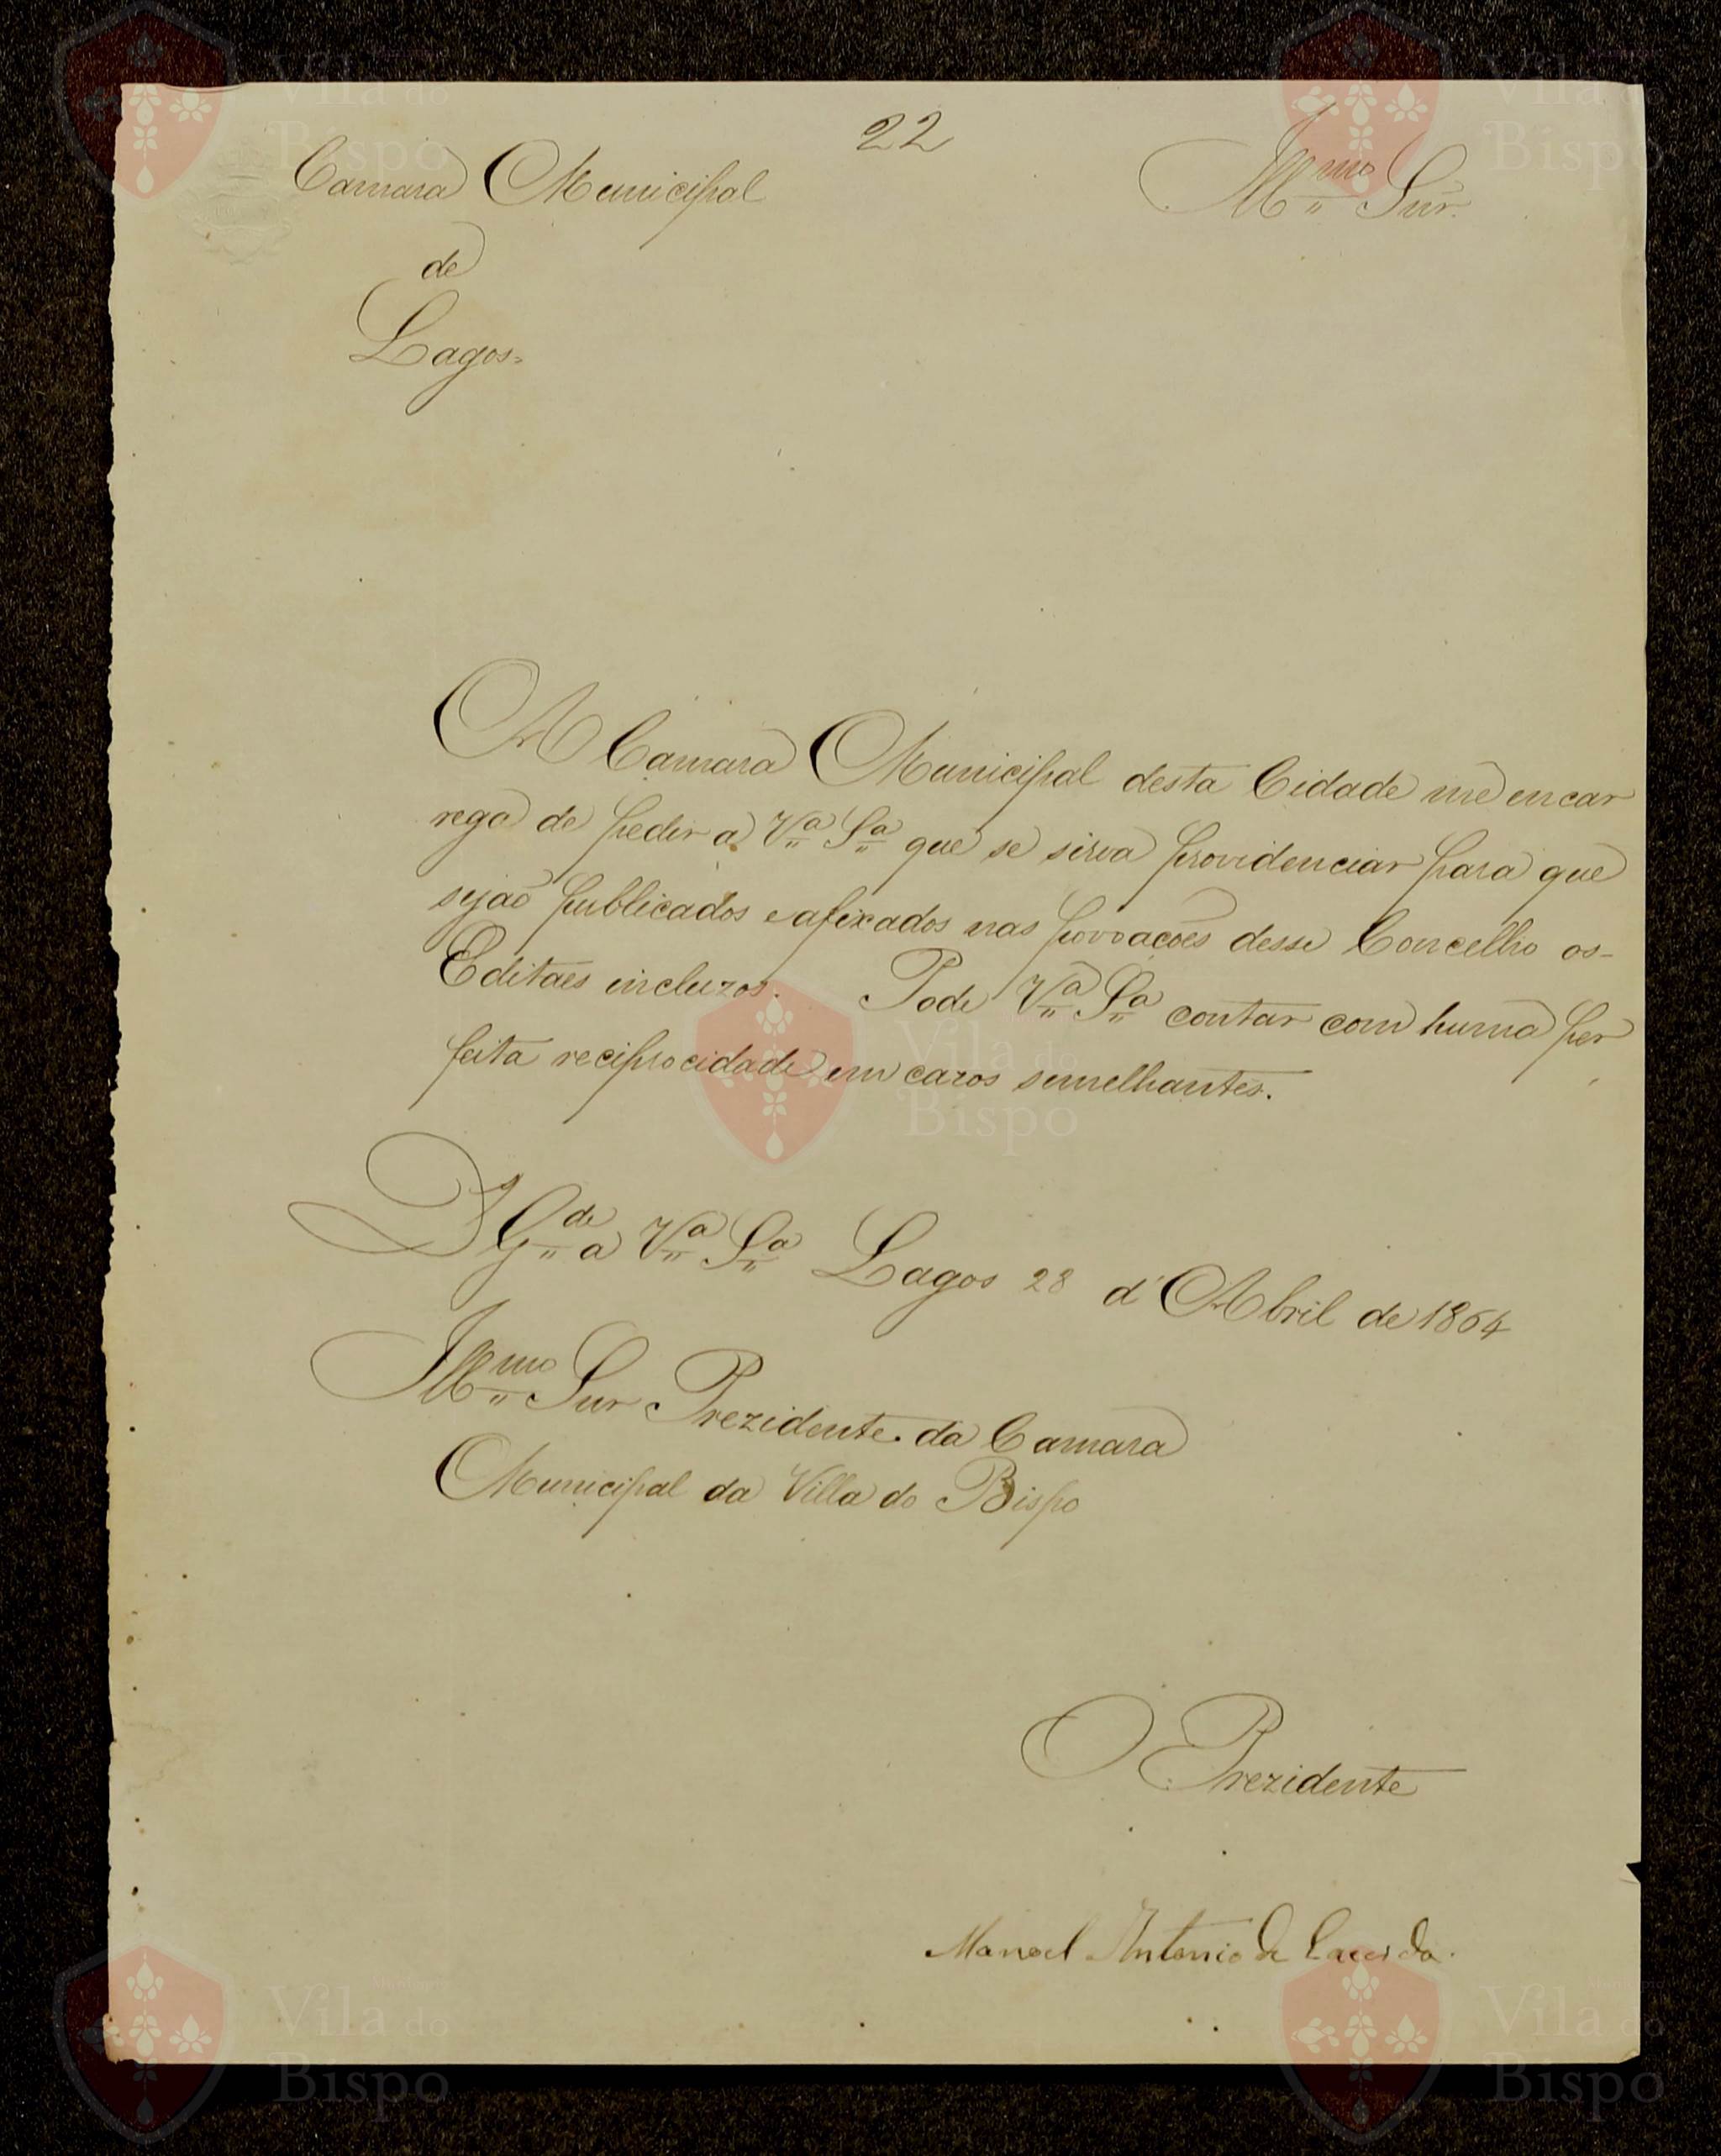 22
Camara Municipal
de
Lagos=
Illmo Snr.
A Camara Municipal desta Cidade me encar
rega de pedir a Vª Sª que se sirva providenciar para que
sejão publicados e afixados nas povoações desse Concelho os-
Editaes incluzos. Pode Vª Sª contar com huma per
feita reciprocidade em cazos semelhantes.
D Gde a Vª Sª Lagos 28 d'Abril de 1864
Illmo Snr Prezidente da Camara
Municipal da Villa do Bispo
O Prezidente
Manoel Antonio de Lacerda.
Vila do
Bispo
Vila do
Bispo
Vila do
Bispo
Vila do
Bispo
Vila do
Bispo